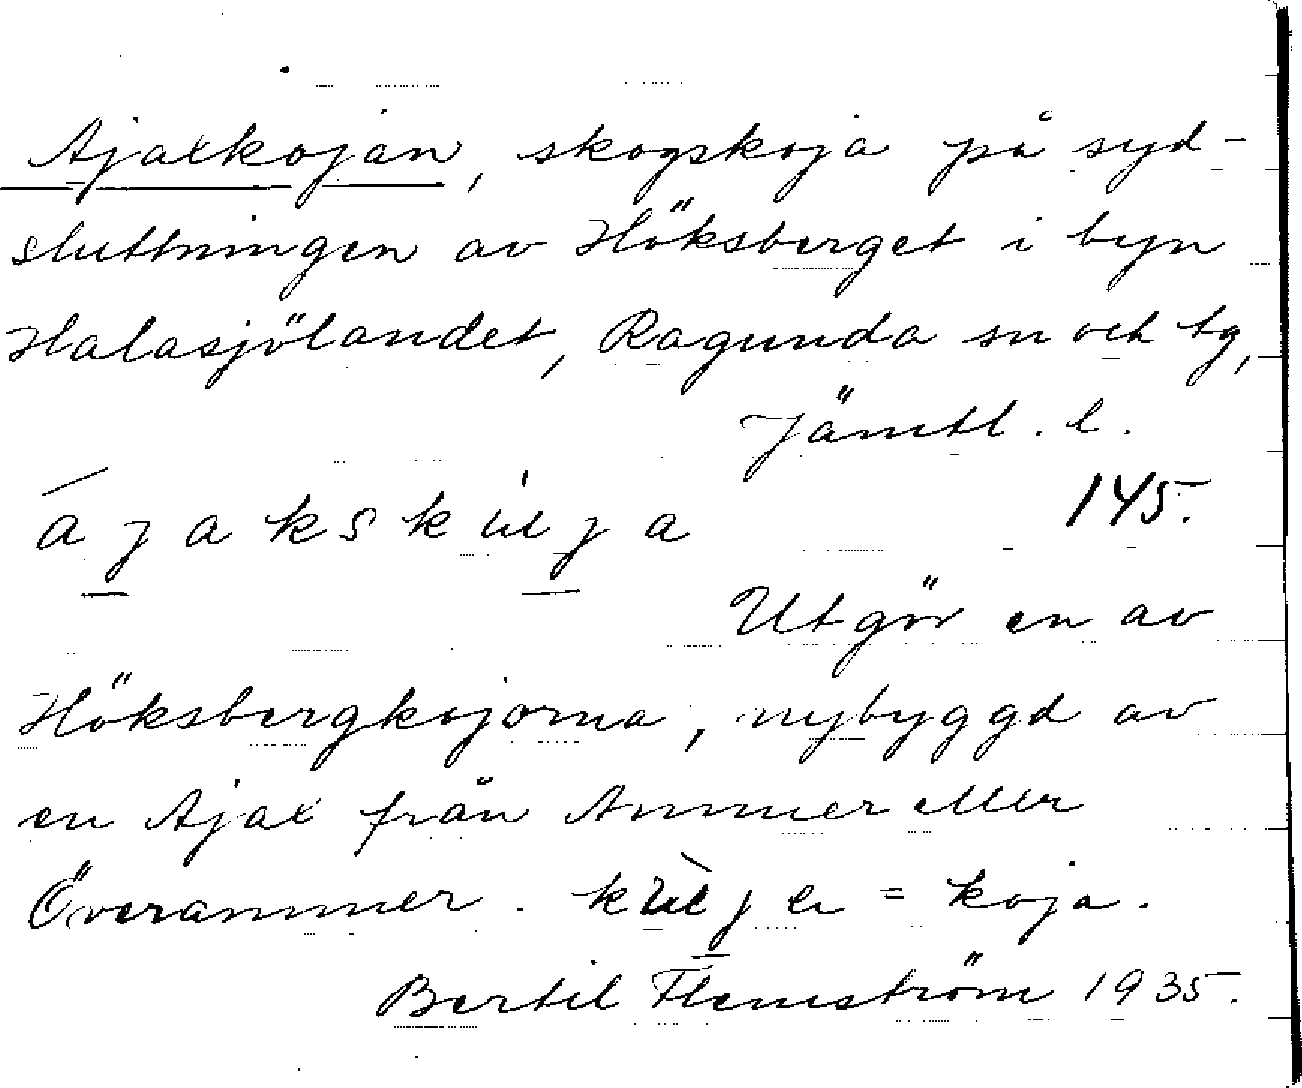 Ajaxkojan, skogskoja på syd-
sluttningen av Höksberget i byn
Halasjölandet, Ragunda sn och tg,
Jämtl. l.
ájakskúja
145.
Utgör en av
Höksbergkojorna, nybyggd av
en Ajax från Ammer eller
Överammer. = koja.
Bertil Flemström 1935.